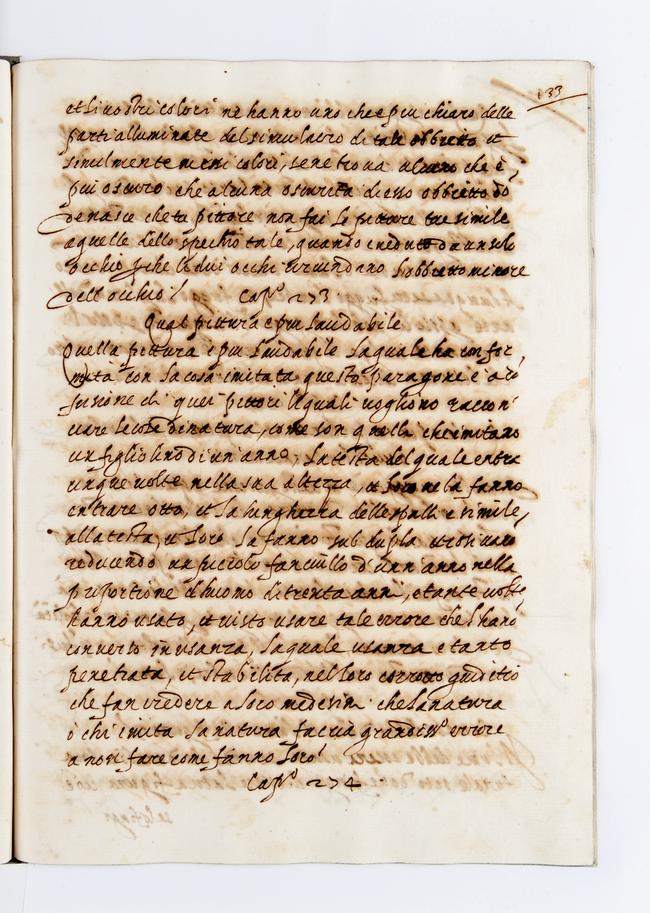 133
et li nostri colori ne hanno uno che e piu chiaro delle
parti alluminate del simulacro di tale obbietto et
similmente ne ni colori, se ne trova alcuno che è
piu oscuro che alcuna oscurità di esso obbietto do
de nasce che tu pittore non fai le pitture tue simile
a quelle dello spechio tale, quando è veduto da un solo
occhio p che li dui occhi circundano l'obbietto minore
dell'occhio!
Cap.º 273
Qual pittura e piu laudabile
Quella pittura e piu laudabile la quale ha confor
mita con la cosa imitata questo paragone è à co
fusione di quei pittori li quali vogliono raccon
ciare le cose di natura, come son quelli che imitano
un figliolino di un anno, la testa del quale entra
cinque volte nella sua altezza, et loro ne la fanno
entrare otto, et la lunghezza delle spalle e simile
alla testa, et loro la fanno sub dupla et cosi vano
reducendo un picciolo fanciullo d'un anno nella
proportione d'huomo di trenta anni, et tante volte
hanno usato, et visto usare tale errore che l'hano
converso in usanza, la quale usanza e tanto
penetrata, et stabilita, nel loro corrotto giuditio
che fan credere a loro medesimi che la natura
ò chi imita la natura faccia grandiss.º errore
a non fare come fanno loro!
Cap.º 274